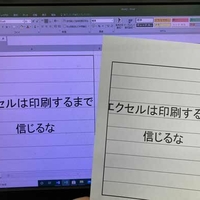 セルは印刷するまで
信じるな
エクセルは印刷する
信じるな